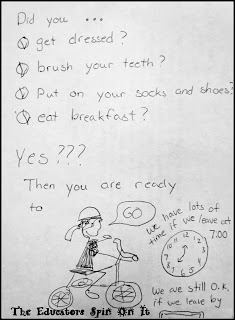 Did you ...
get dressed?
brush your teeth?
Put on your socks and shoes?
eat breakfast?
Yes???
Then you are ready
to
GO
we have lots of
time if we leave at
7:00
12 1 2 3 4 5 6 7 8 9 10 11
we are still O.K.
if we leave by
The Educators' Spin On It